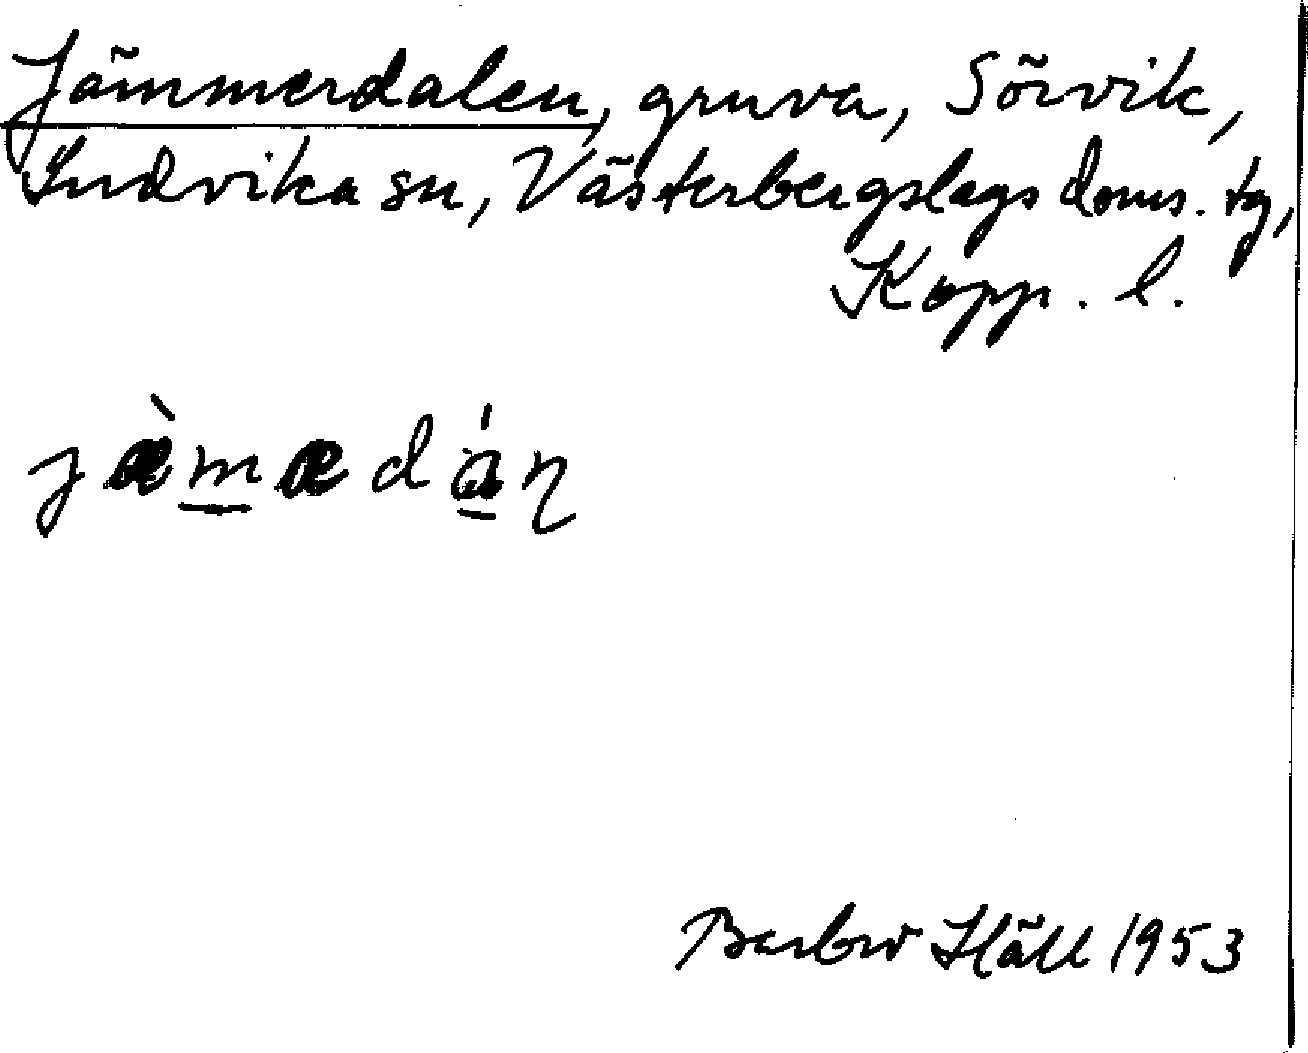 Jämmerdalen, gruva, Sörvik,
Ludvika sn, Västerbergslags doms. tg,
Kopp. l.
jæ̀m̲ædá̲ɳ
Barbro Häll 1953